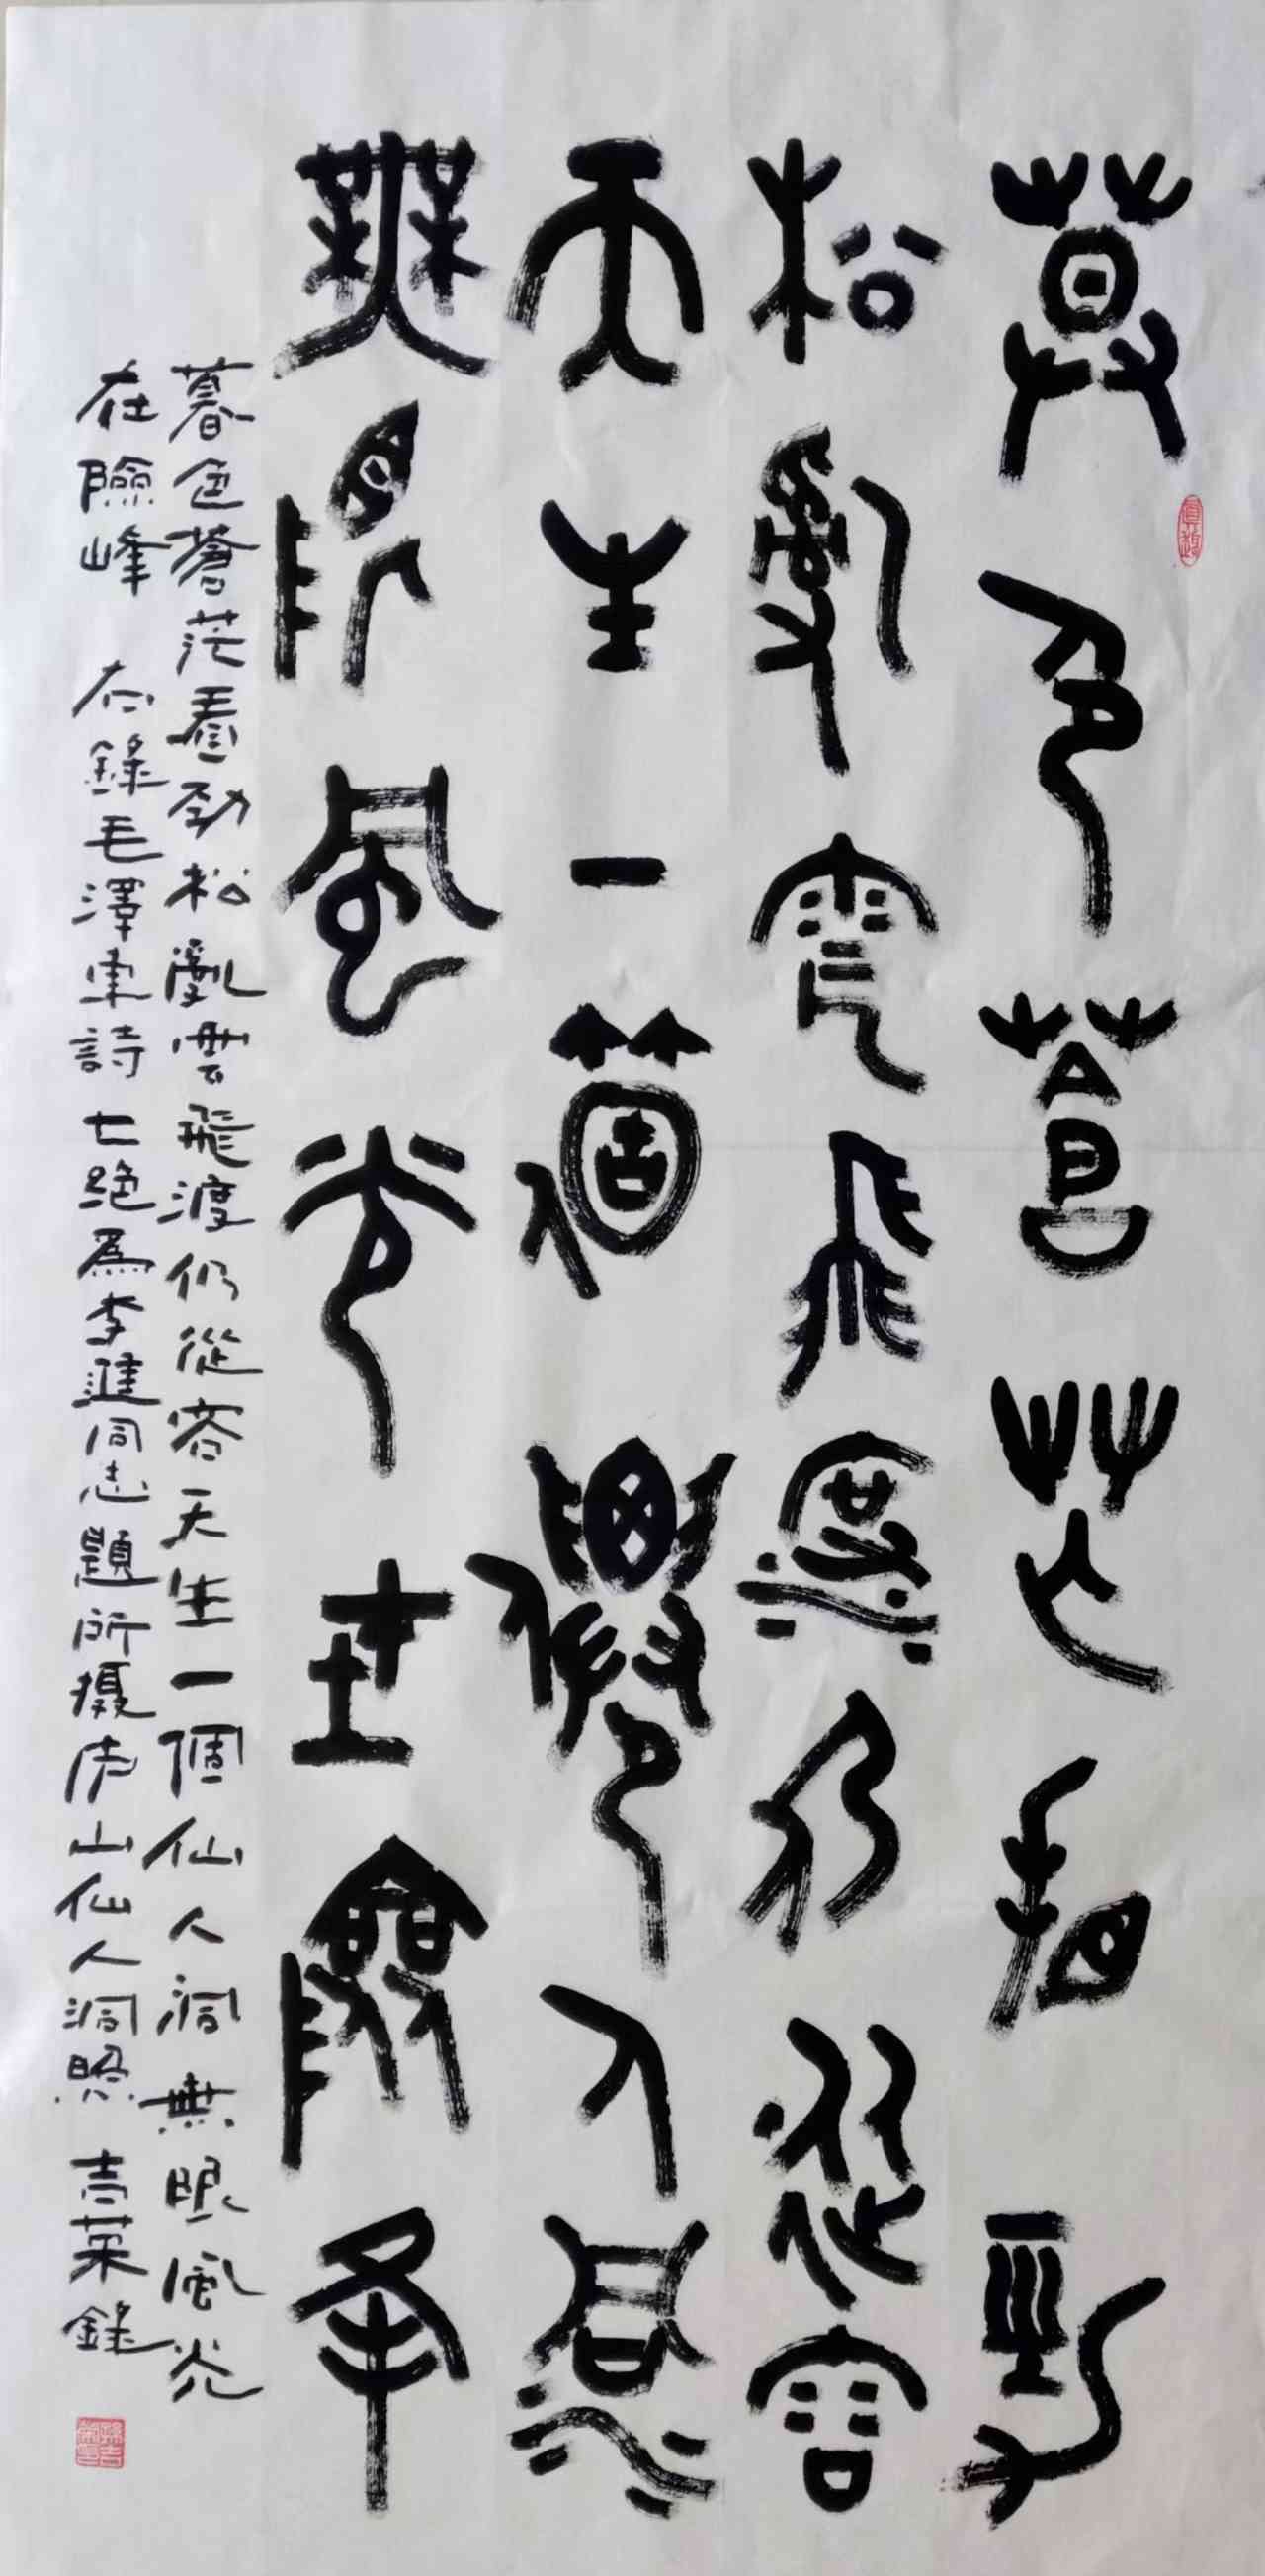 暮色蒼茫看勁
松亂雲飛渡仍從容
天生一個僊人洞
無限風光在險峰
暮色蒼茫看勁松亂雲飛渡仍從容天生一個仙人洞無限風光
在險峰 右錄毛澤東詩七絕為李進同志題所攝庐山仙人洞照 吉菜錄